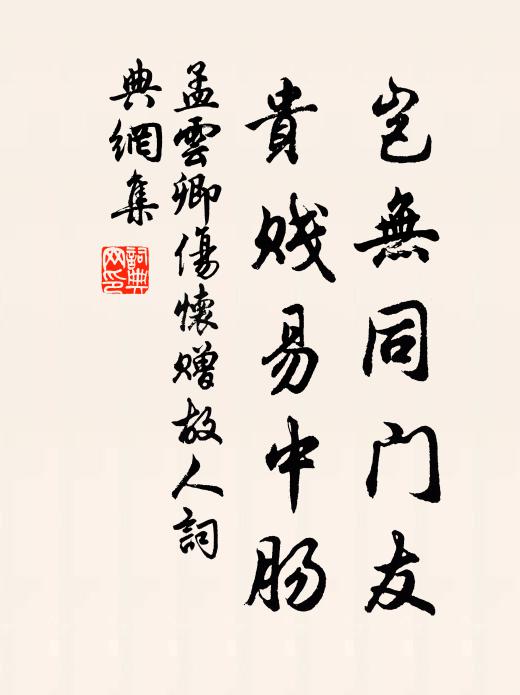 岂無同门友
貴贱易中肠
孟雲卿傷懷贈故人詞
典網集
詞典网印